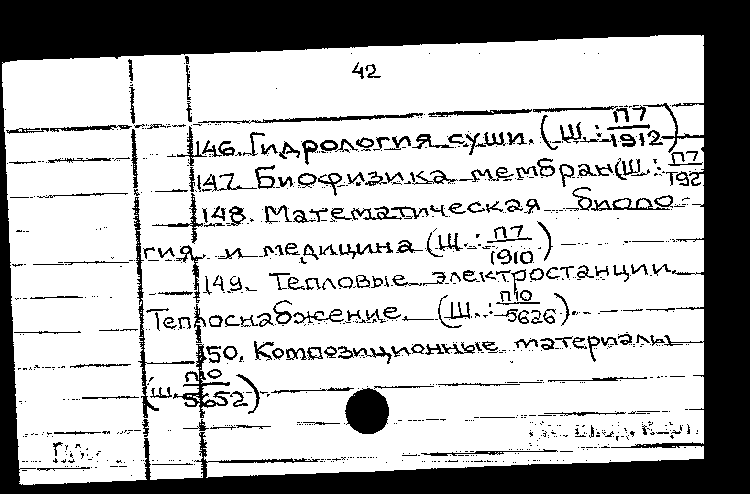 42
146. Гидрология суши. (Ш.: П7/1912).
147. Биофизика мембран (Ш.: П7/192
148. Математическая биоло-
гия и медицина (Ш.: П7/1910)
149. Тепловые электростанции.
Теплоснабжение. (Ш.: П10/5626).
150. Композиционные материалы
(Ш. П10/5652)